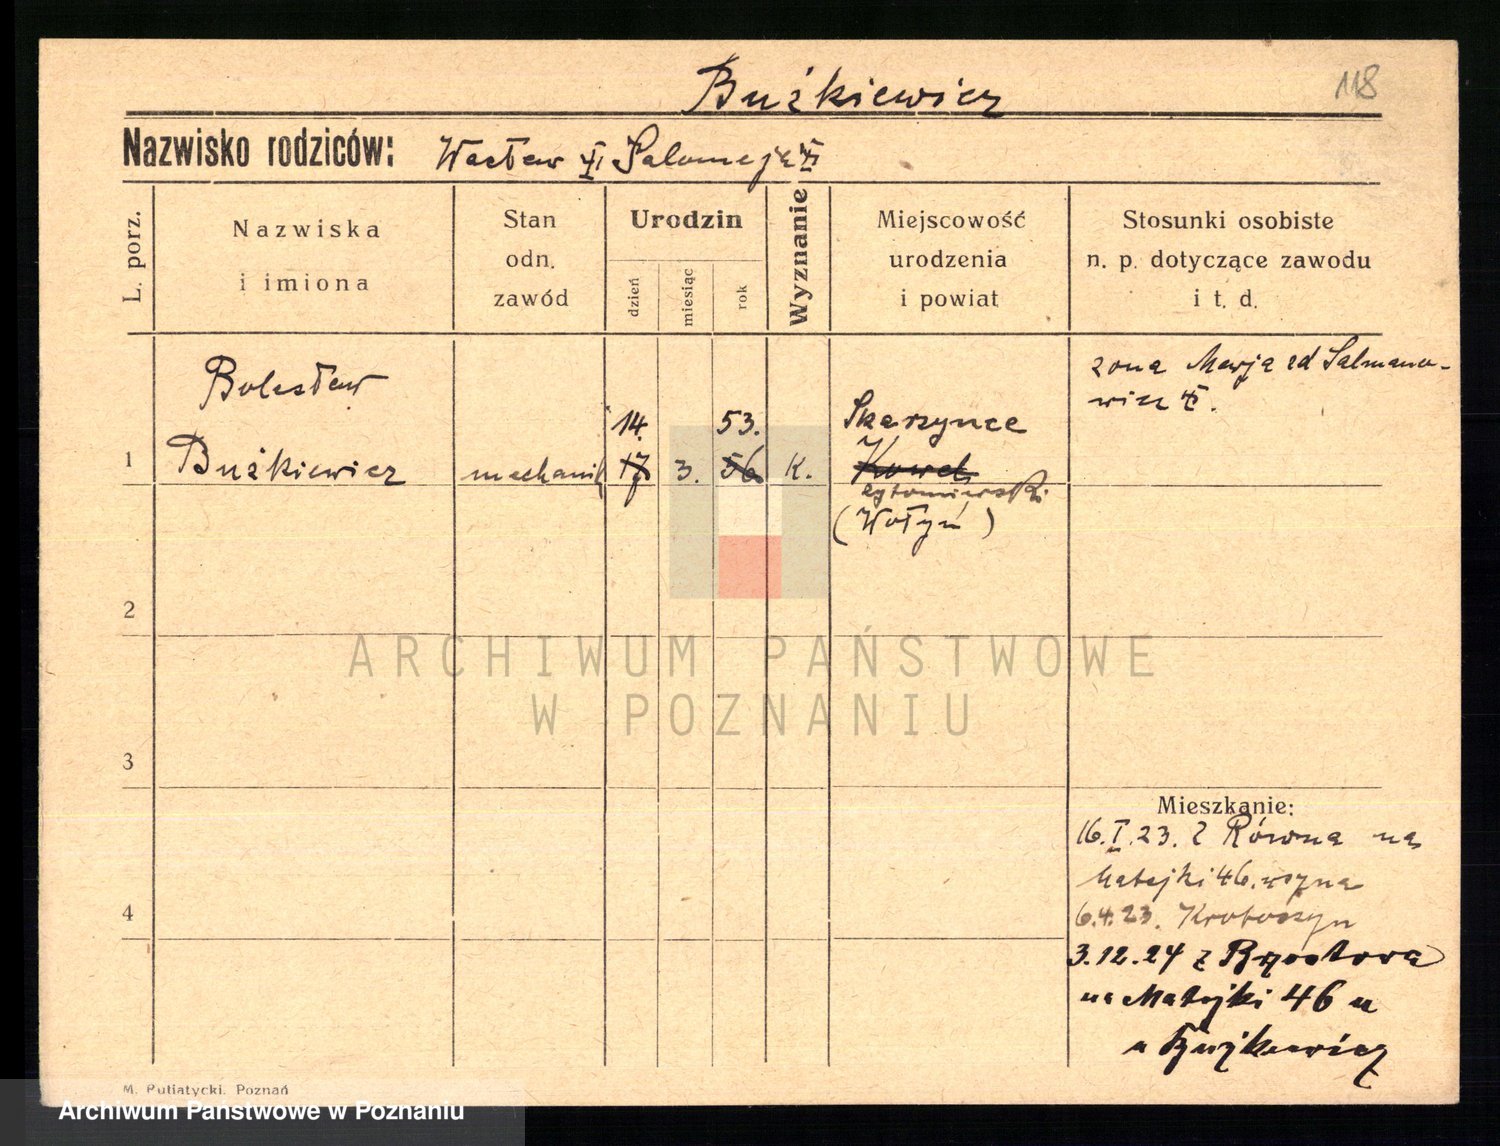 Bużkiewicz
118
Nazwisko rodziców: Wacław Salomeja
L. porz.
Nazwiska
i imiona
Stan
odn.
zawód
Urodzin
dzień
miesiąc
rok
Wyznanie
Miejscowość
urodzenia
i powiat
Stosunki osobiste
n. p. dotyczące zawodu
i t. d.
1
Bolesław
Bużkiewicz
mechanik
14.
17
3.
53.
56
K.
Skarzynce
Kowel
żytomierski
(Wołyń)
żona Marja zd Salmano-
wicz
2
3
4
Mieszkanie:
16.I.23. z Równa na
Matejki 46.
6.4.23. Krotoszyn
3.12.24 z
na Matejki 46 u
Bużkiewicz
M. Putiatycki, Poznań
ARCHIWUM PAŃSTWOWE
W POZNANIU
Archiwum Państwowe w Poznaniu